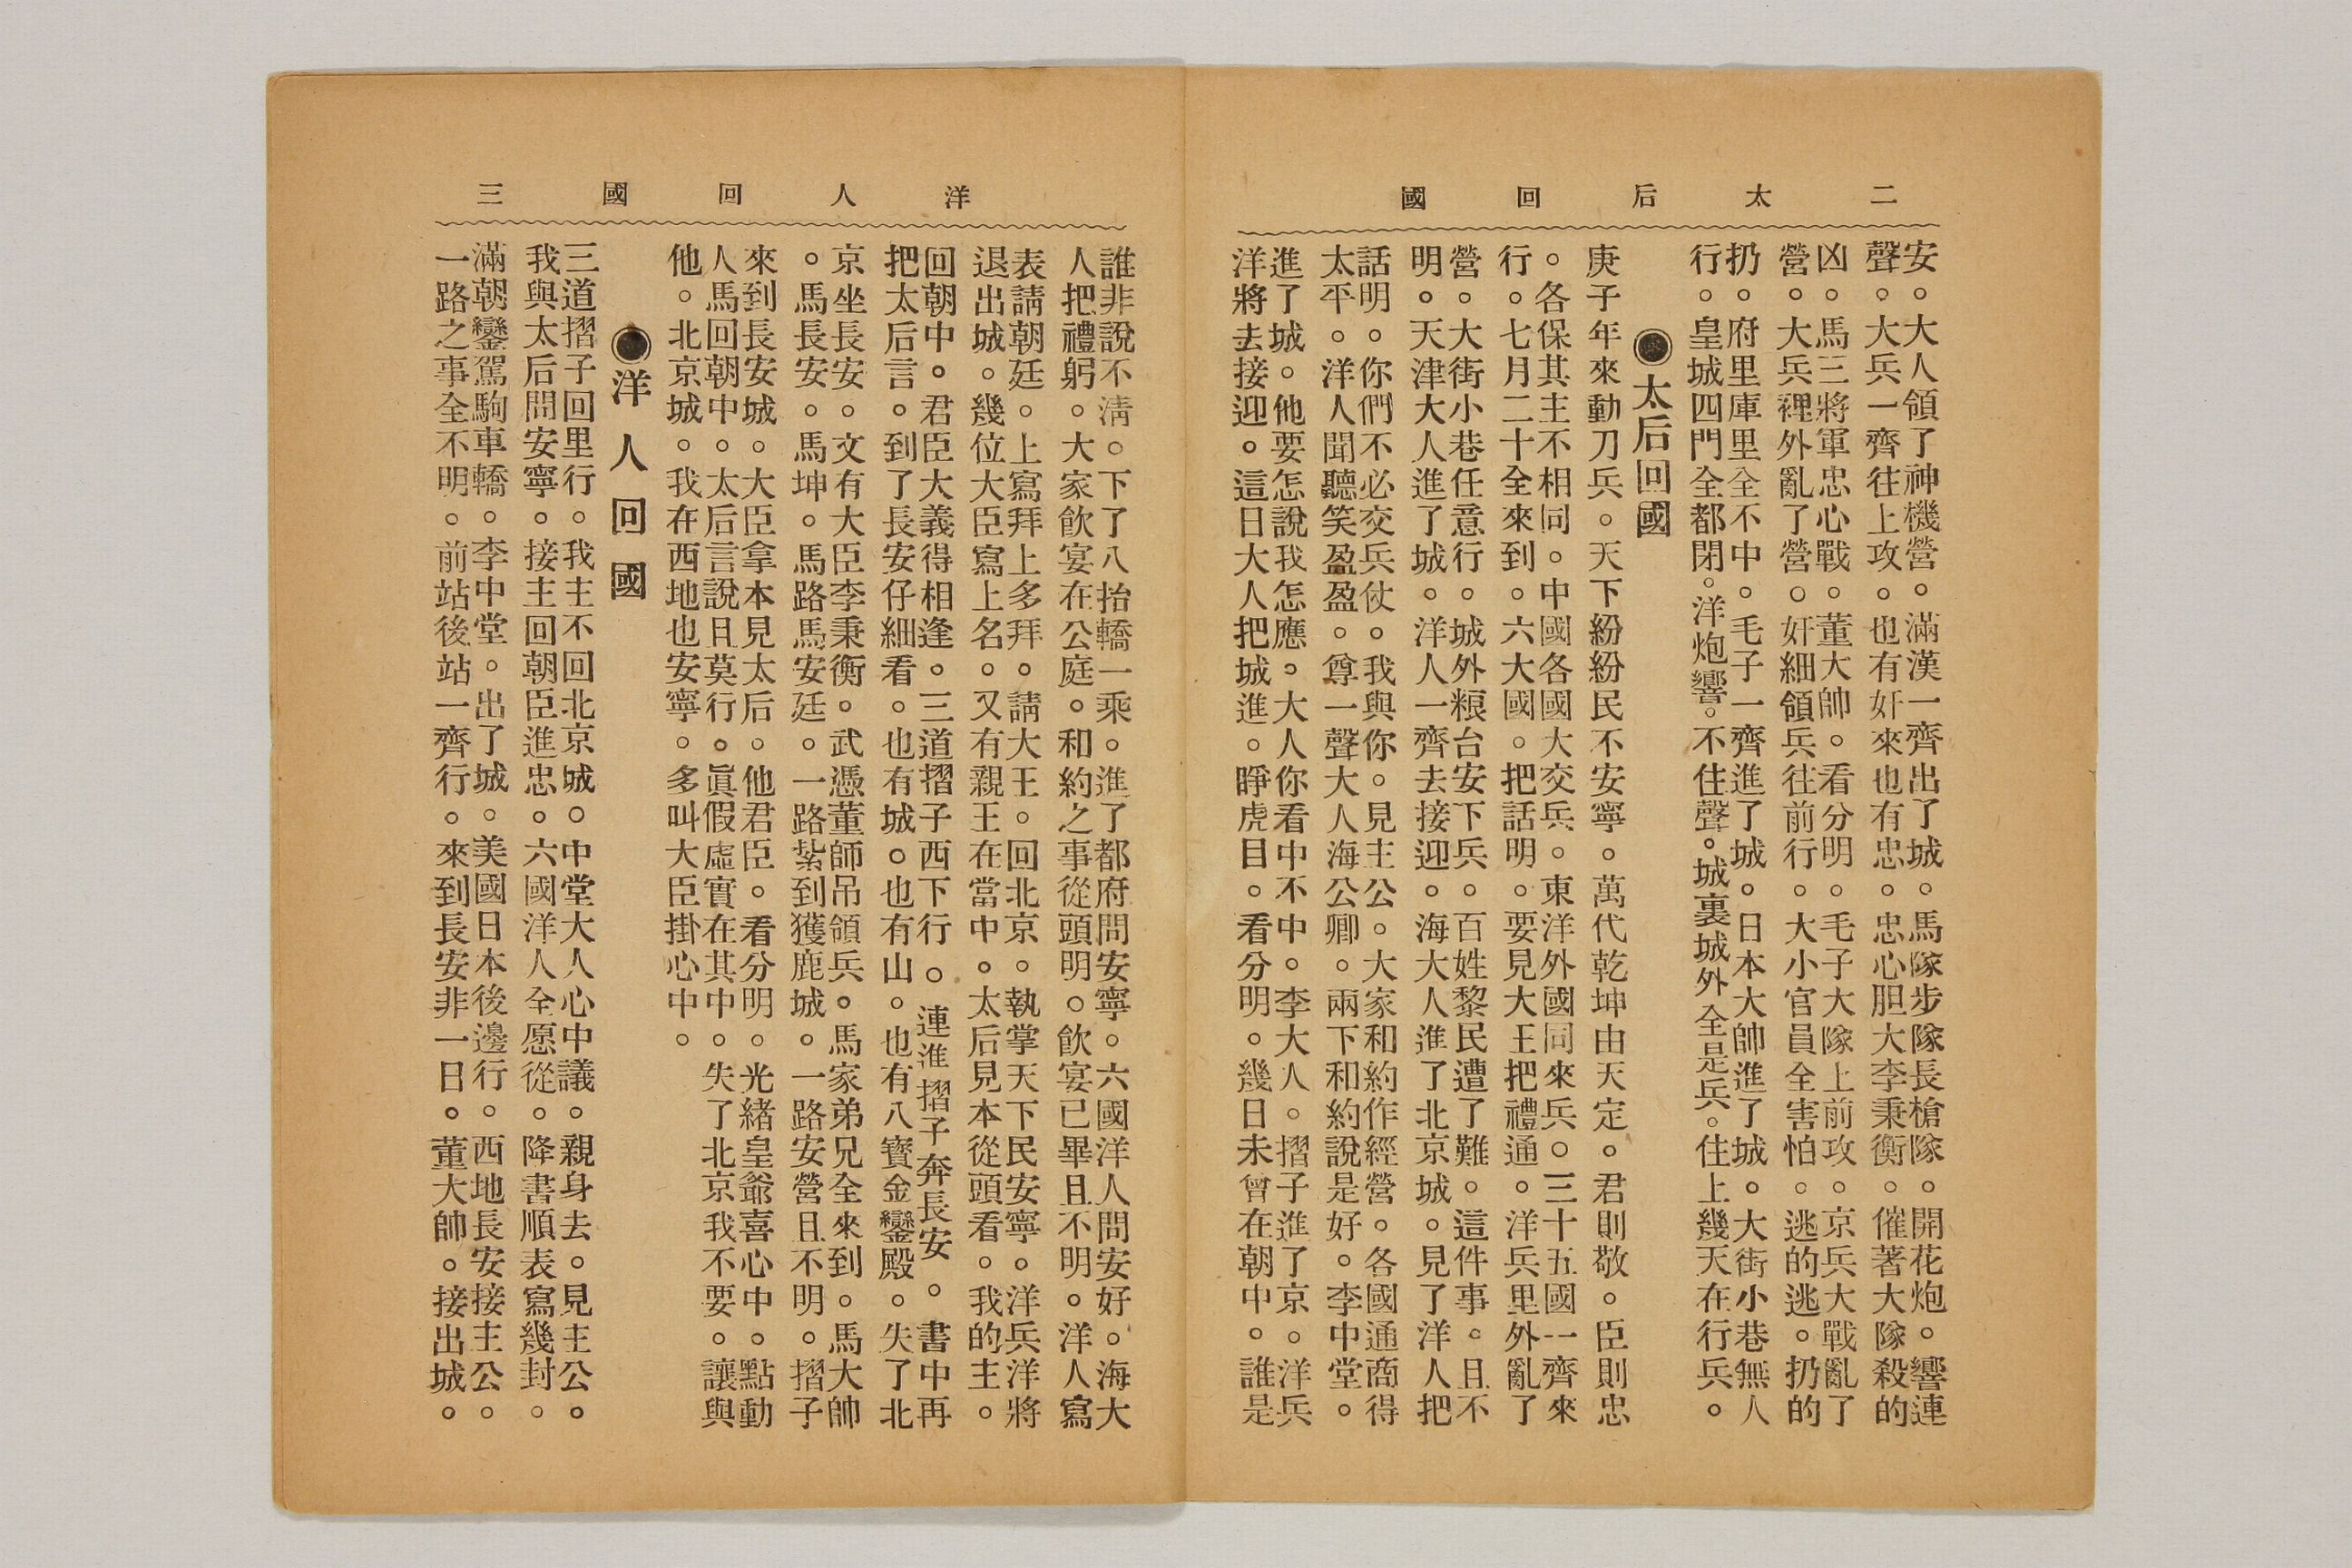 二 太后回國
安。大人領了神機營。滿漢一齊出了城。馬隊步隊長槍隊。開花炮。響連
聲。大兵一齊往上攻。也有奸來也有忠。忠心胆大李秉衡。催著大隊殺的
凶。馬三將軍忠心戰。董大帥。看分明。毛子大隊上前攻。京兵大戰亂了
營。大兵裡外亂了營。奸細領兵往前行。大小官員全害怕。逃的逃。扔的
扔。府里庫里全不中。毛子一齊進了城。日本大帥進了城。大街小巷無人
行。皇城四門全都閉。洋炮響。不住聲。城裏城外全是兵。住上幾天在行兵。
◉太后回國
庚子年來動刀兵。天下紛紛民不安寧。萬代乾坤由天定。君則敬。臣則忠
。各保其主不相同。中國各國大交兵。東洋外國同來兵。三十五國一齊來
行。七月二十全來到。六大國。把話明。要見大王把禮通。洋兵里外亂了
營。大街小巷任意行。城外粮台安下兵。百姓黎民遭了難。這件事。且不
明。天津大人進了城。洋人一齊去接迎。海大人進了北京城。見了洋人把
話明。你們不必交兵仗。我與你。見主公。大家和約作經營。各國通商得
太平。洋人聞聽笑盈盈。尊一聲大人海公卿。兩下和約說是好。李中堂。
進了城。他要怎說我怎應。大人你看中不中。李大人。摺子進了京。洋兵
洋將去接迎。這日大人把城進。睜虎目。看分明。幾日未曾在朝中。誰是
洋人回國 三
誰非說不淸。下了八抬轎一乘。進了都府問安寧。六國洋人問安好。海大
人把禮躬。大家飲宴在公庭。和約之事從頭明。飲宴已畢且不明。洋人寫
表請朝廷。上寫拜上多拜。請大王。回北京。執掌天下民安寧。洋兵洋將
退出城。幾位大臣寫上名。又有親王在當中。太后見本從頭看。我的主。
回朝中。君臣大義得相逢。三道摺子西下行。連進摺子奔長安。書中再
把太后言。到了長安仔細看。也有城。也有山。也有八寶金鑾殿。失了北
京坐長安。文有大臣李秉衡。武憑董師吊領兵。馬家弟兄全來到。馬大帥
。馬長安。馬坤。馬路馬安廷。一路紮到獲鹿城。一路安營且不明。摺子
來到長安城。大臣拿本見太后。他君臣。看分明。光緒皇爺喜心中。點動
人馬回朝中。太后言說且莫行。眞假虛實在其中。失了北京我不要。讓與
他。北京城。我在西地也安寧。多叫大臣掛心中。
◉洋人回國
三道摺子回里行。我主不回北京城。中堂大人心中議。親身去。見主公。
我與太后問安寧。接主回朝臣進忠。六國洋人全愿從。降書順表寫幾封。
滿朝鑾駕駒車轎。李中堂。出了城。美國日本後邊行。西地長安接主公。
一路之事全不明。前站後站一齊行。來到長安非一日。董大帥。接出城。